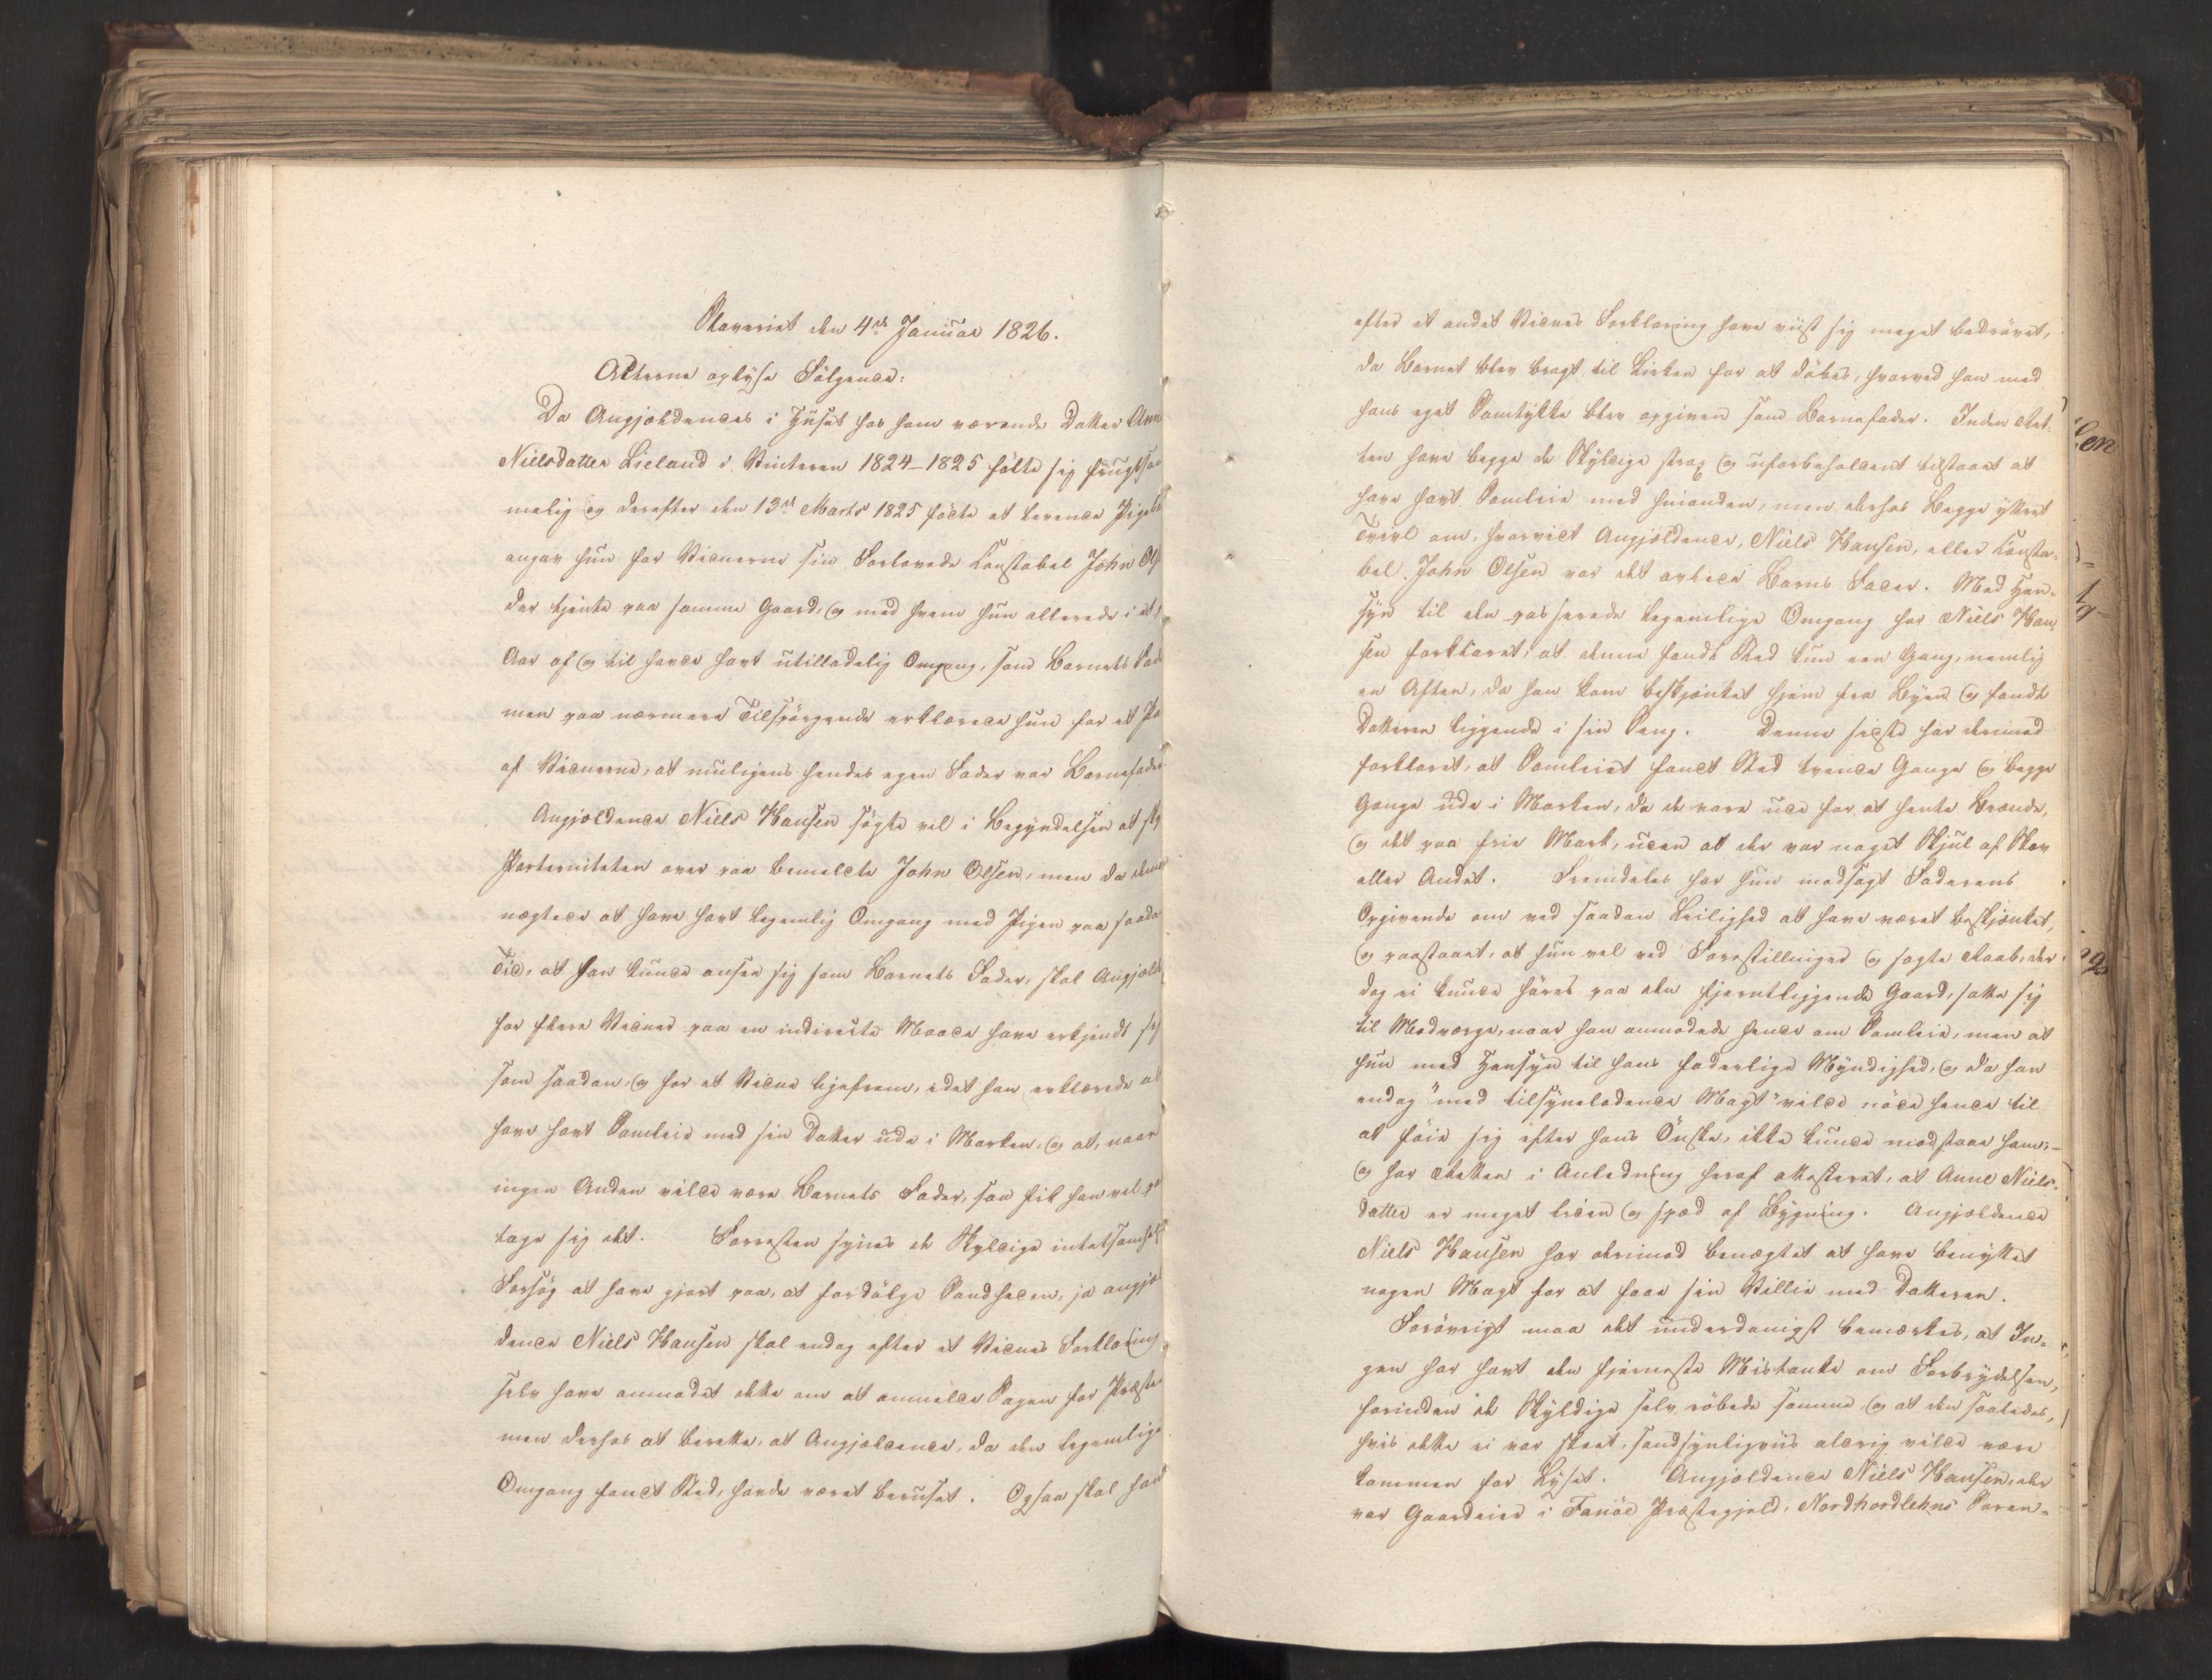 Placeriet den 4de Januar 1826.
Acterne oplyse Følgende:
Da Angjældendes i Huset hos ham værende Datter Ann
Nielsdatter Lieland i Vinteren 1824-1825 følte sig frugtsom
melig og derefter den 13de Marts 1825 fødte et levende Pigeba
angav hun for Vidnerne sin Forlovede Constabel John Ols
der tjente paa samme Gaard, og med hvem hun allerede i et
Aar af og til havde havt utilladelig Omgang, som Barnets Fad
men paa nærmere Tilspørgende erklærede hun for et Pa
af Vidnerne, at muligens hendes egen Fader var Barnefader.
Angjældende Niels Hansen søgte vel i Begyndelsen at sky
Paterniteten over paa bemeldte John Olsen, men da denne
nægtede at have havt legemlig Omgang med Pigen paa saada
Tid, at han kunde ansee sig som Barnets Fader, skal Angjæld
for flere Vidner paa en indirecte Maade have erkjendt sig
som saadan, og for et Vidne ligefrem, idet han erklærede at
have havt Samleie med sin Datter ude i Marken, og at, naar
ingen Anden vilde være Barnets Fader, saa fik han vel pa
tage sig det. Forresten synes de Skyldige intetsomhelst
Forsøg at have gjort paa, at fordølge Sandheden, ja angjæ
dende Niels Hansen skal endog efter et Vidnes Forklaring
selv have anmodet dette om at anmelde Sagen for Præste
men derhos at berette, at Angjældende, da den legemlige
Omgang fandt Sted, havde været beruset. Ogsaa skal han
efter et andet Vidnes Forklaring have viist sig meget bedrøvet,
da Barnet blev bragt til Kirken for at døbes, hvorved han med
hans eget Samtykke blev opgiven som Barnefader. Inden Ret-
ten have begge de Skyldige strax og uforbeholdent tilstaaet at
have havt Samleie med hinanden, men derhos Begge yttret
Tvivl om, hvorvidt Angjældende, Niels Hansen, eller Consta-
bel John Olsen var det avlede Barns Fader. Med Hen-
syn til den passerede legemlige Omgang har Niels Han-
sen forklaret, at denne fandt Sted kun een Gang, nemlig
en Aften, da han kom beskjænket hjem fra Byen og fandt
Datteren liggende i sin Seng. Denne sidste har derimod
forklaret, at Samleiet fandt Sted tvende Gange og begge
Gange ude i Marken, da de vare ude for at hente Brænde,
og det paa frie Mark, uden at der var noget Skjul af Skov
eller Andet. Fremdeles har hun modsagt Faderens
Opgivende om ved saadan Leilighed at have været beskjænket,
og paastaaet, at hun vel ved Forestillinger og sagte Raab, der
dog ei kunde høres paa den fjerntliggende Gaard, satte sig
til Modværge, naar han anmodede hende om Samleie, men at
hun med Hensyn til hans faderlige Myndighed, og da han
endog "med tilsyneladende Magt" vilde nøde hende til
at føie sig efter hans Ønske, ikke kunde modstaae ham;-
og har Retten i Anledning heraf attesteret, at Anne Niels-
datter er meget liden og spæd af Bygning. Angjældende
Niels Hansen har derimod benægtet at have benyttet
nogen Magt for at faae sin Villie med Datteren.
Forøvrigt maa det underdanigst bemærkes, at In-
gen har havt den fjerneste Mistanke om Forbrydelsen,
forinden de Skyldige selv røbede samme, og at den saaledes,
hvis dette ei var skeet, sandsynligviis aldrig vilde være
kommen for Lyset. Angjældende Niels Hansen, der
var Gaardeier i Fanøe Præstegjeld, Nordhordlehns Soren-